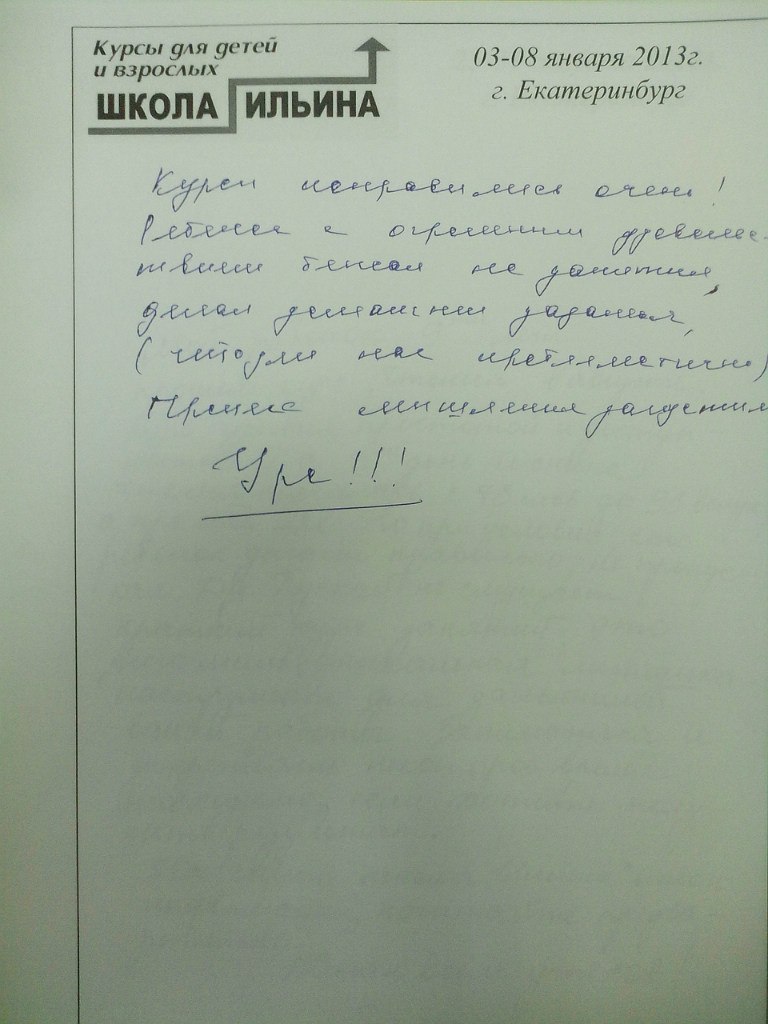 Курсы для детей
и взрослых
ШКОЛА ИЛЬИНА
03-08 января 2013г.
г. Екатеринбург
Курсы понравились очень!
Ребенок с огромным удовольс-
твием бежал на занятия,
делал домашние задания,
(чтo для нас проблематично)
Процесс мышления запустили
Ура!!!